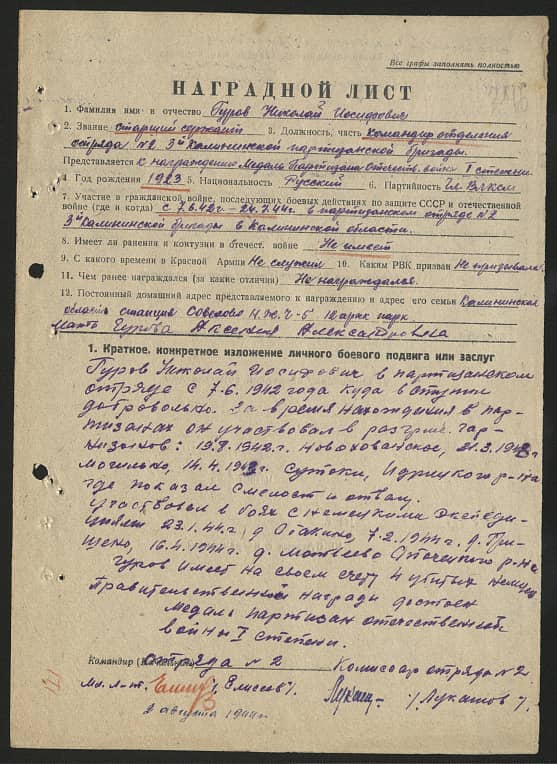 Все графы заполнять полностью
НАГРАДНОЙ ЛИСТ
1. Фамилия имя и отчество Гуров Николай Иосифович
2. Звание старший сержант 3. Должность, часть командир отделения
отряда №2 3й Калининской партизанской бригады.
Представляется к награждению Медаль Партизана Отечеств. войны I степени
4. Год рождения 1923 5. Национальность Русский 6. Партийность Чл. ВЛКСМ
7. Участие в гражданской войне, последующих боевых действиях по защите СССР и отечественной
войне (где и когда) с 7.6.42г – 24.7.44г. в партизанском отряде №2
3й Калининской бригады в Калининской области.
8. Имеет ли ранения и контузии в отечест. войне Не имеет
9. С какого времени в Красной Армии Не служил 10. Каким РВК призван Не призывался
11. Чем ранее награждался (за какие отличия) Не награждался.
12. Постоянный домашний адрес представляемого к награждению и адрес его семьи Калининская
область станция парк
мать Гурова Александровна
1. Краткое, конкретное изложение личного боевого подвига или заслуг
Гуров Николай Иосифович в партизанском
отряде с 7.6.1942 года куда вступил
добровольно. За время нахождения в пар-
тизанах он участвовал в разгроме гар-
низонов: 19.8.1942г. 21.3.1943г
14.4.1943г. Сутоки, Идрицкого р-на
где показал смелость и отвагу.
Участвовал в боях с немецкими экспеди-
циями 23.1.44г. д. 7.2.1944г. д.
16.4.1944г. д. Матвеево Опочецкого р-на
Гуров имеет на своем счету 4 убитых немцев
Правительственной награды достоен
Медаль партизан отечественной
войны I степени.
Командир отряда №2 Комиссар отряда №2
Мл. л-т. /Елисеев/. /Лукашов/.
2 августа 1944г
121